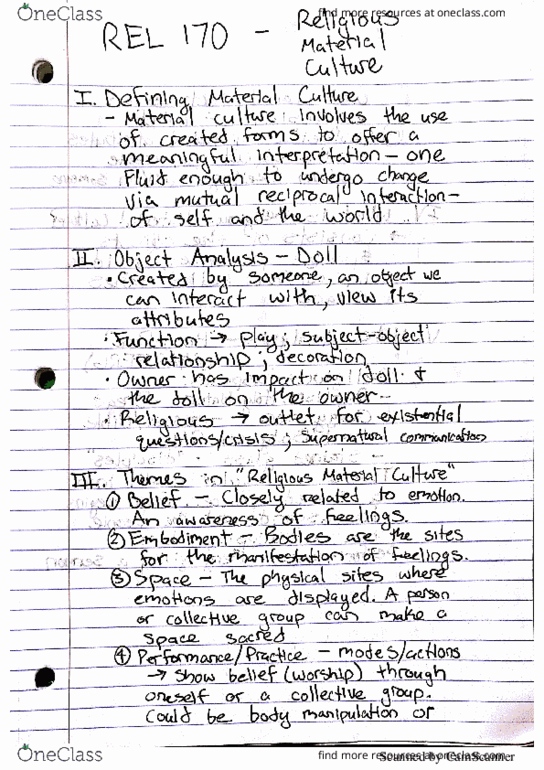 OneClass
find more resources at oneclass.com
REL 170 - Religious
Material
Culture
I. Defining Material Culture
- Material culture involves the use
of created forms to offer a
meaningful interpretation - one
fluid enough to undergo change
via mutual reciprocal interaction -
of self and the world
II. Object Analysis - Doll
• Created by someone, an object we
can interact with, view its
attributes
• Function → play; subject-object
relationship; decoration
• Owner has impact on doll &
the doll on the owner
• Religious → outlet for existential
questions/crisis; supernatural communication
III. Themes in "Religious Material Culture"
① Belief - Closely related to emotion.
An awareness of feelings.
② Embodiment - Bodies are the sites
for the manifestation of feelings.
③ Space - The physical sites where
emotions are displayed. A person
or collective group can make a
space sacred
④ Performance/Practice - modes/actions
→ show belief (worship) through
oneself or a collective group.
Could be body manipulation or
OneClass
find more resources at oneclass.com
Scanned by CamScanner